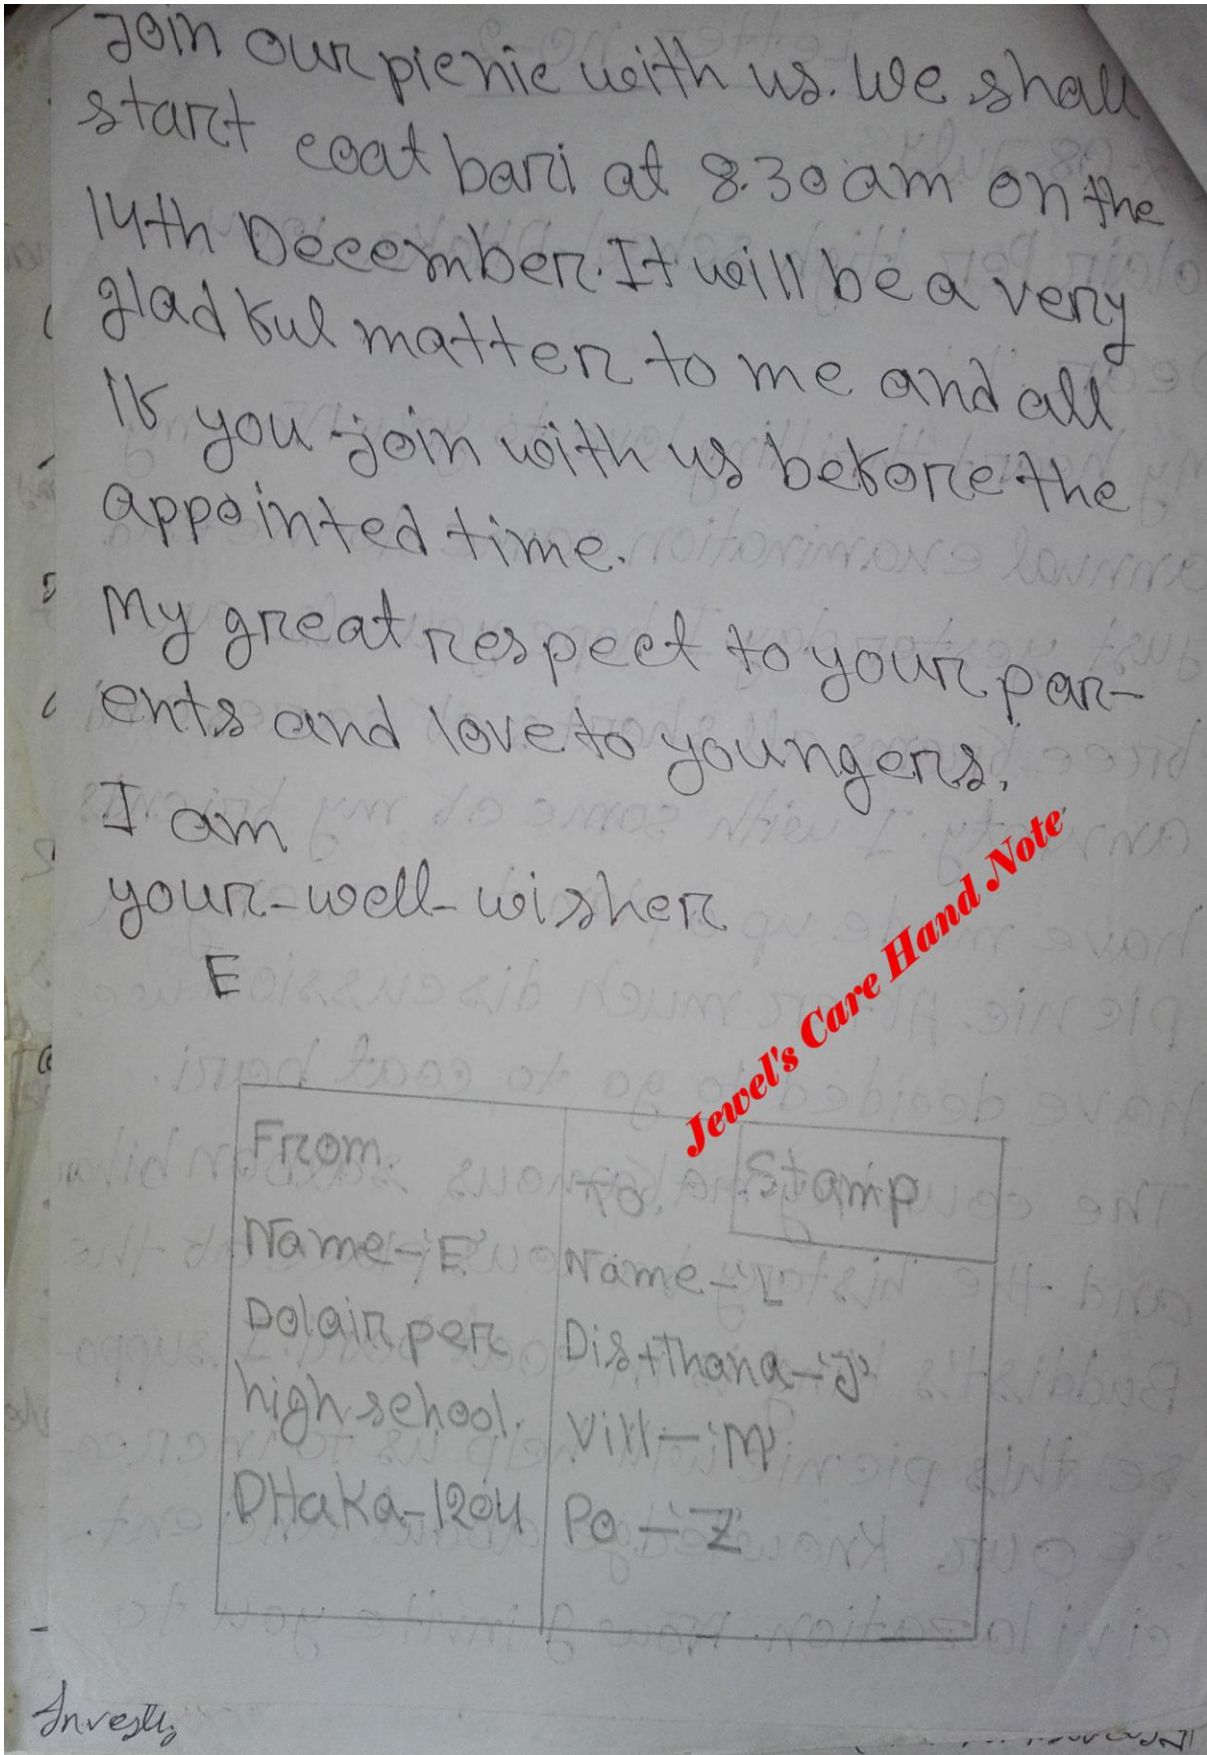 Join our picnic with us. We shall
start coat bari at 8.30 am on the
14th December. It will be a very
gladful matter to me and all
If you join with us before the
appointed time.
My great respect to your par-
ents and love to youngers.
I am
your-well-wisher
E
Jewel's Care Hand Note
From
Name-'E'
Dolair per
high school.
DHaka-1204
To,
Stamp
Name-'L'
Dis+Thana-'J'
Vill-'M'
Po-'Z'